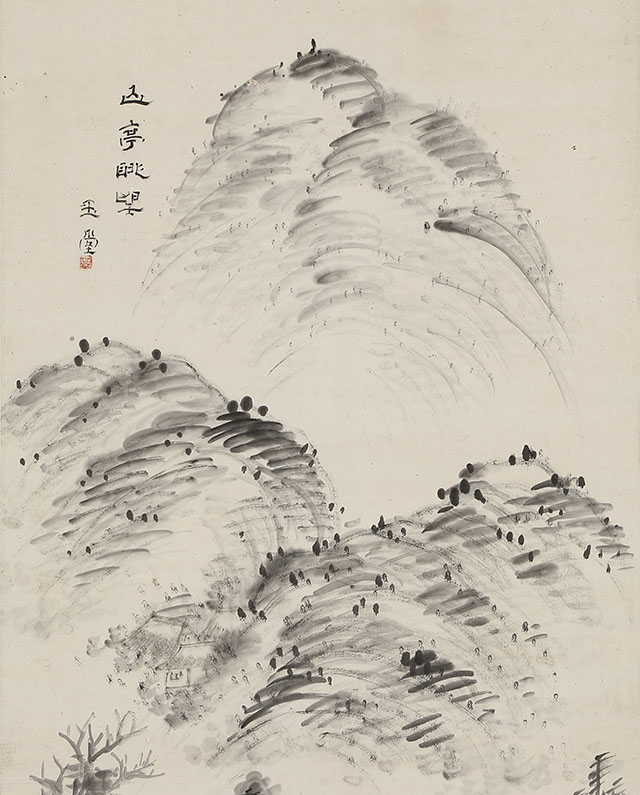 山亭眺望
玉堂